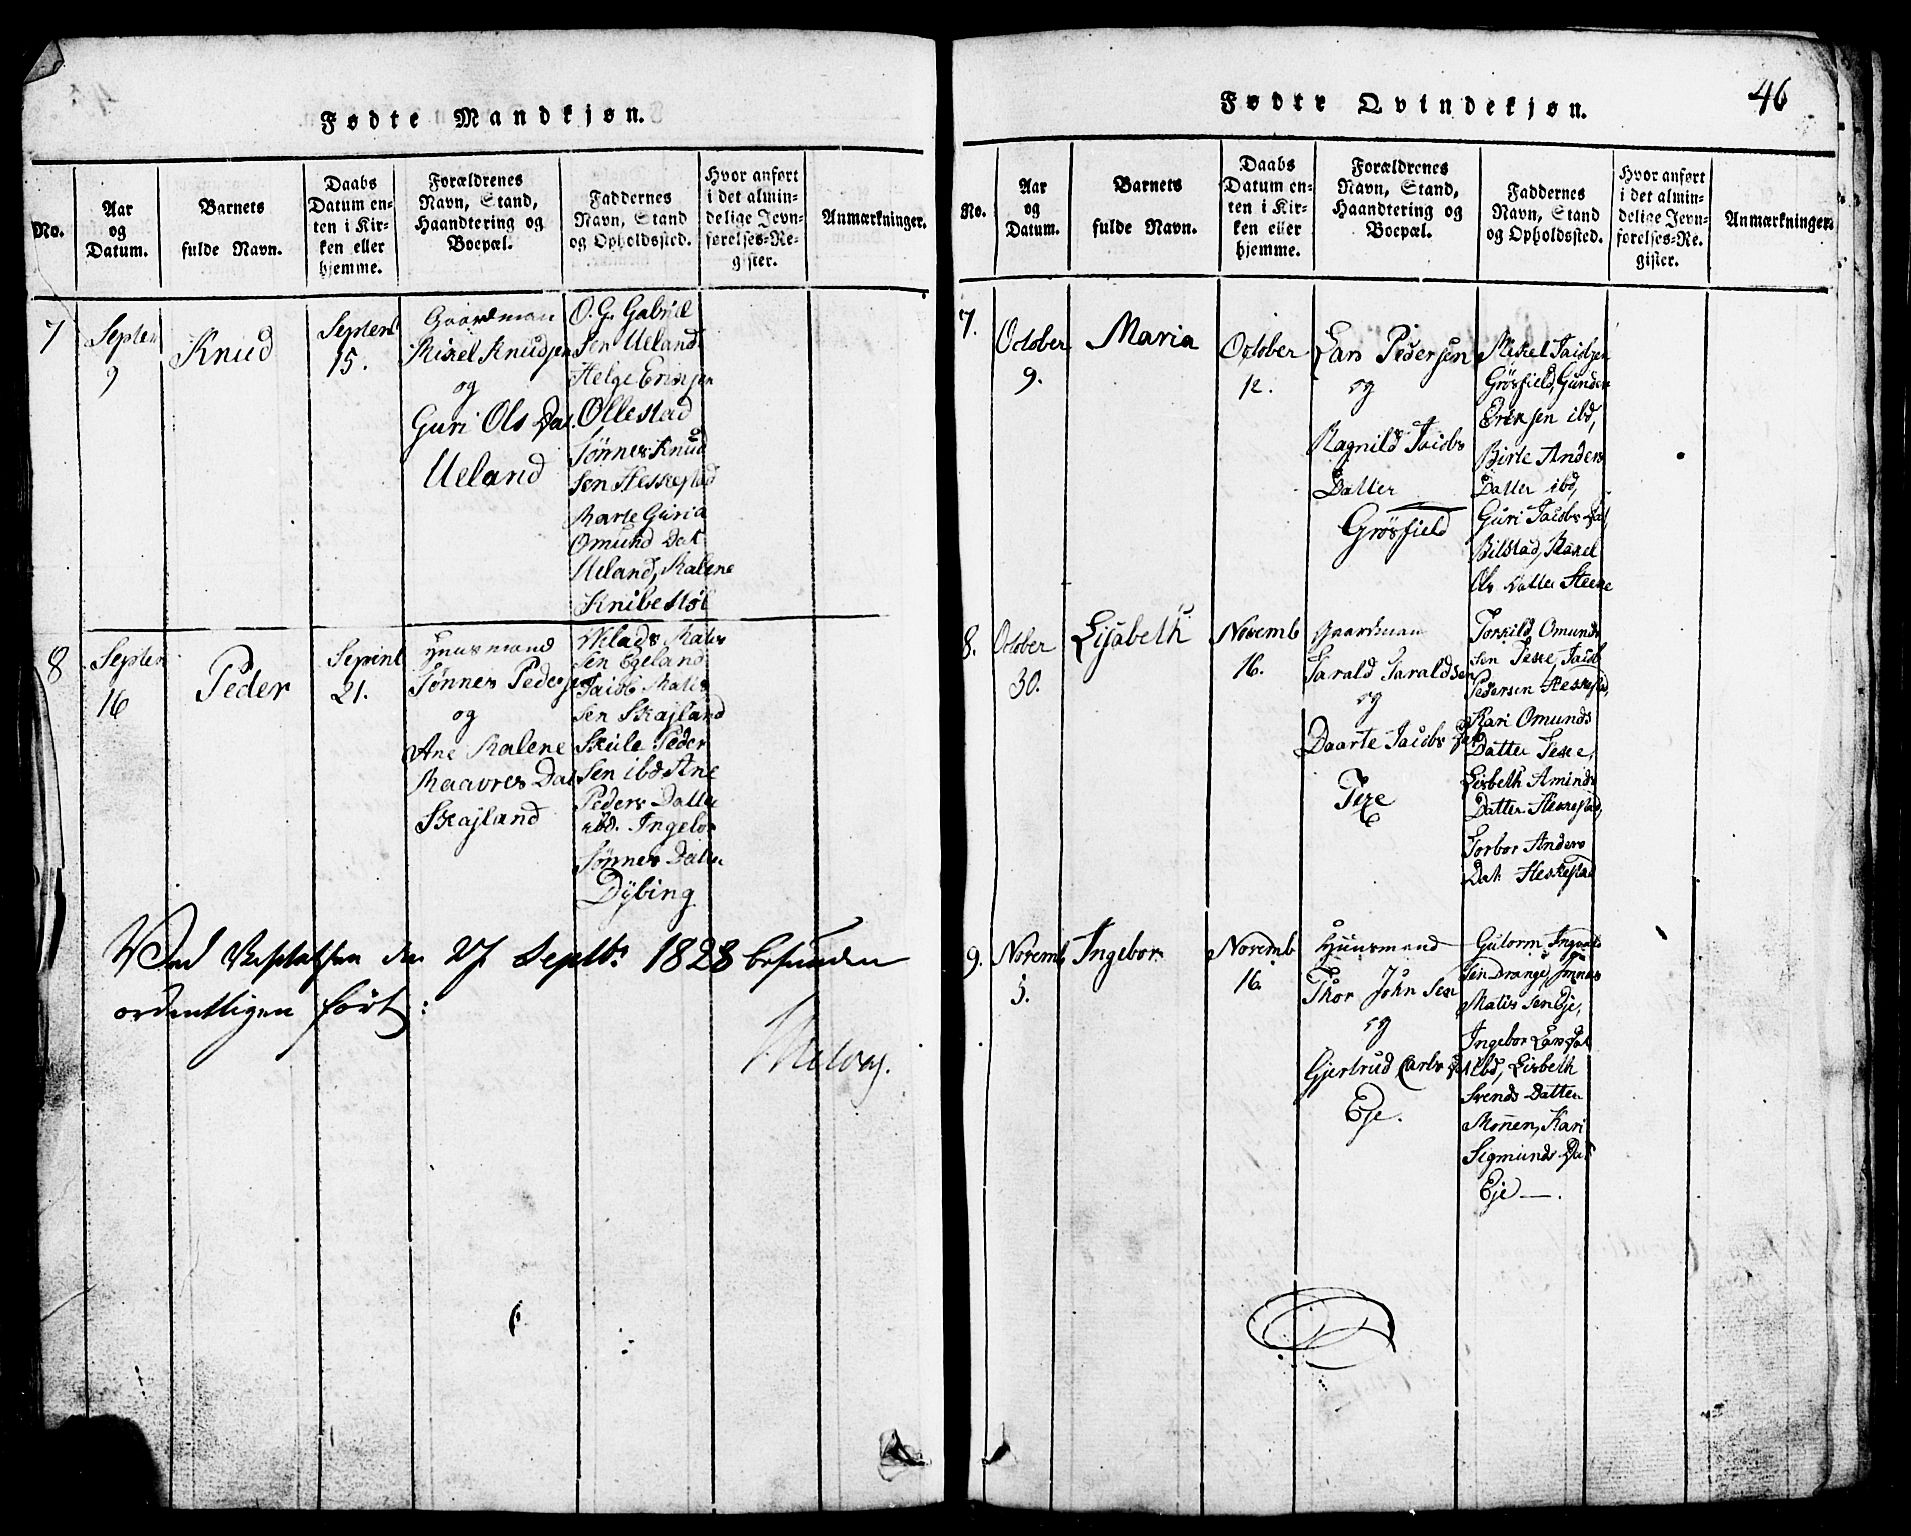 Fødte Mandkjøn.
No.
Aar
og
Datum.
Barnets
fulde Navn.
Daabs
Datum en-
ten i Kir-
ken eller
hjemme.
Forældrenes
Navn, Stand,
Haandtering og
Boepæl.
Faddernes
Navn, Stand
og Opholdssted.
Hvor anført
i det almin-
delige Jevn-
førelses-Re-
gister.
Anmærkninger.
7
Septem
9
Knud
Septem
15.
Gaardman
Mikel Knudsen
og
Guri Ols Dat.
Ueland
O. G. Gabriel
Sen Ueland
Helge Eriksen
Ollestad
Tønnes Knud
Sen Heskestad
Marte Guria
Omund Dat
Ueland, Malene
Knibestøl
8
Septem
16
Peder
Septem
21.
Huusmand
Tønnes Pedersen
og
Ane Malene
Maavres Dat
Skajland
Mates
Sen Egeland
Jacob Mates
Sen Skajland
Skule Peder
Sen ibd Ane
Peders Datter
ibd. Ingebor
Tønnes Datter
Dybing
Ved Visitatsen den 27 Septbr 1828 befunden
ordentligen ført:
Fødte Qvindekjøn.
46
No.
Aar
og
Datum.
Barnets
fulde Navn.
Daabs
Datum en-
ten i Kir-
ken eller
hjemme.
Forældrenes
Navn, Stand,
Haandtering og
Boepæl.
Faddernes
Navn, Stand
og Opholdssted.
Hvor anført
i det almin-
delige Jevn-
førelses-Re-
gister.
Anmærkninger.
7.
October
9.
Maria
October
12.
Lars Pedersen
og
Ragnild Jacobs
Datter
Grøsfield
Mikel Jacobsen
Grøsfield, Gunder
Eriksen ibd,
Birte Anders
Datter ibd,
Guri Jacobs Dat
Bilstad, Rakel
Ols Datter Steene
8.
October
30.
Lisabeth
Novemb
16.
Gaardman
Tarald Taraldsen
og
Daarte Jacobs Dat
Texe
Torkild Omunds
Sen Texe, Jacob
Pedersen Heskestad,
Kari Omunds
Datter Texe,
Lisbeth Aminds
Datter Heskestad,
Torbor Anders
Dat. Heskestad
9.
Novemb
5.
Ingebor
Novemb
16.
Huusmand
Thor John Sen
og
Gjertrud Carls Dat
Eje.
Gutorm Ingvald
Sen Drange, Jonas
Mates Sen Eje,
Ingebor Lars Dat
ibd, Lisbeth
Svends Datter
Monen, Kari
Segmunds Dat
Eje —.